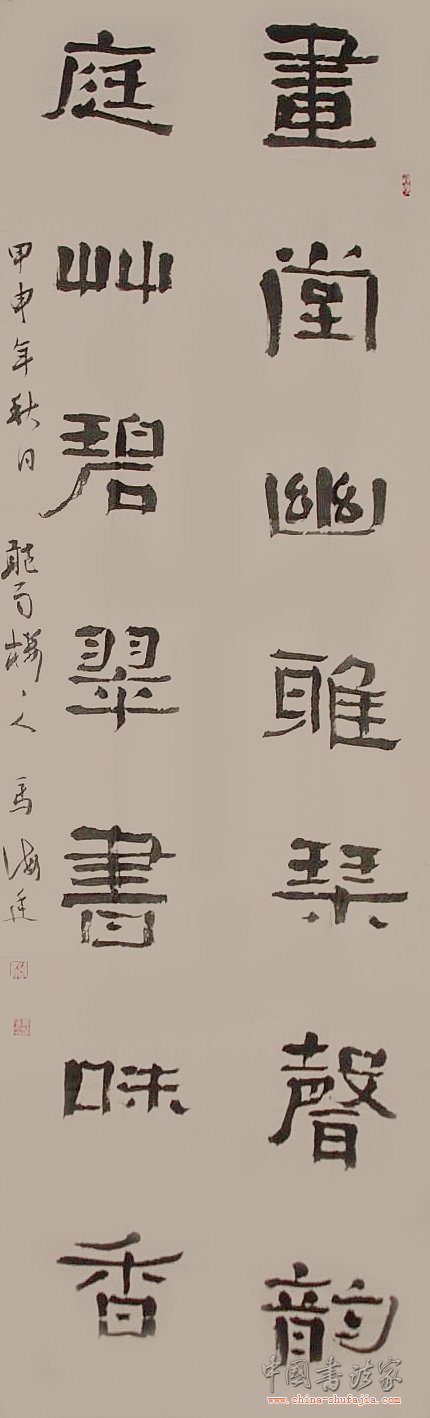 畫堂幽雅琴聲韵
庭艸碧翠書味香
甲申年秋日 樓人 馬海
中國書法家
www.china-shufajia.com